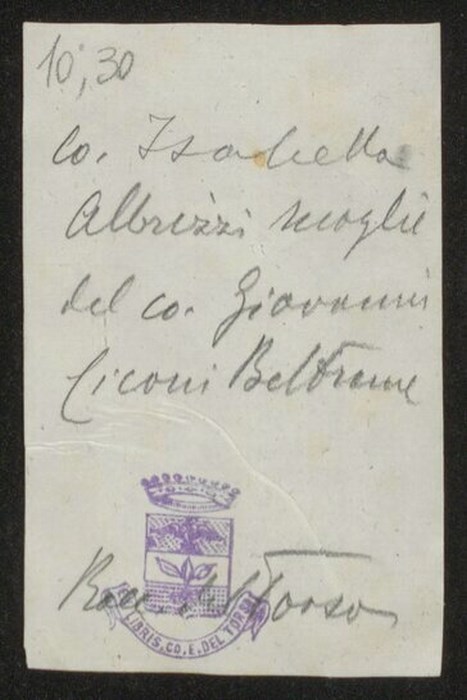 10,30
Co. Isabella
Albrizzi moglie
del co. Giovanni
Ciconi Beltrame
Racc. del Torso
EX LIBRIS. CO. E. DEL TORSO